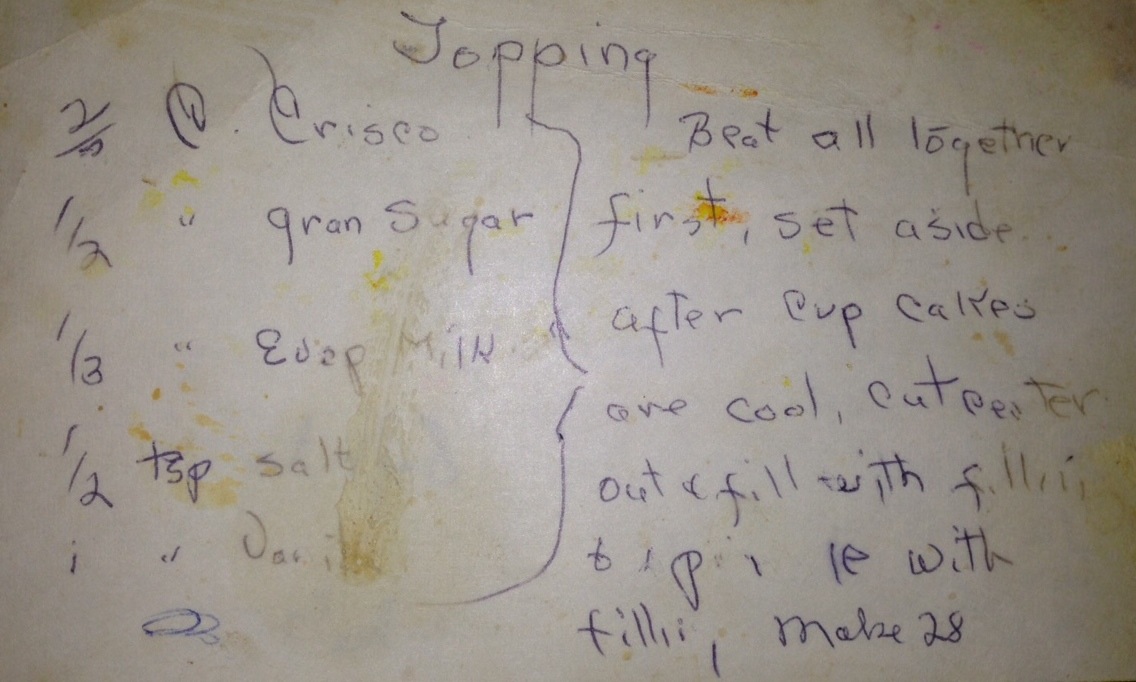 Topping
2/3 C. Crisco
1/2 " gran Sugar
1/3 " Evap Milk
1/2 tsp salt
1 " Vanil
Beat all together
first, set aside
after cup cakes
are cool, cut center
out & fill with
with
make 28